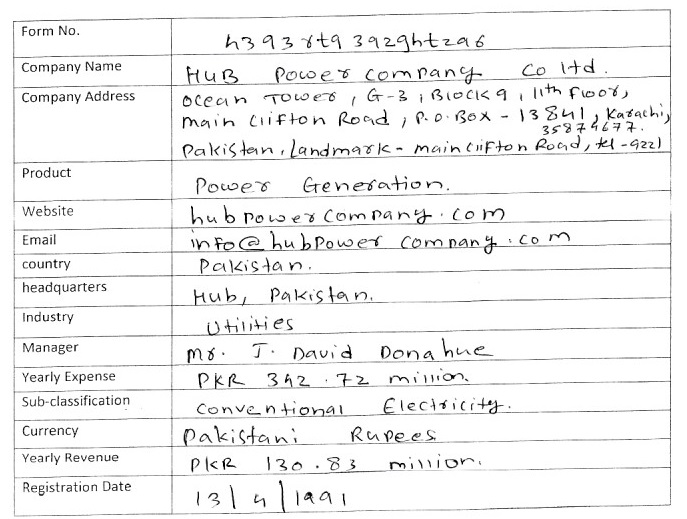 Form No. h393rt9392ght296
Company Name HUB Power company Co ltd.
Company Address Ocean Tower, G-3, Block 9, 11th floor,
main clifton Road, P.O.Box - 13841, Karachi,
35874677.
Pakistan, Landmark - main clifton Road, tel - 9221
Product Power Generation.
Website hubpowercompany.com
Email info@hubpowercompany.com
country Pakistan.
headquarters Hub, Pakistan.
Industry Utilities
Manager Mr. J. David Donahue
Yearly Expense PKR 342.72 million.
Sub-classification Conventional Electricity.
Currency Pakistani Rupees
Yearly Revenue PKR 130.83 million.
Registration Date 13/4/1991